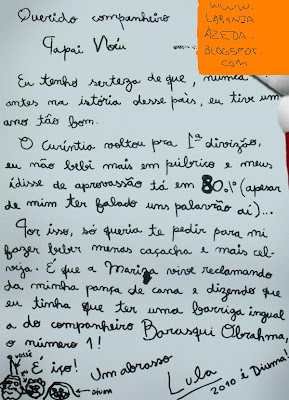 Querido companheiro
Papai Noéu
WWW.
LARANJA
AZEDA.
BLOGSPOT.
COM
Eu tenho serteza de que, nunca
antes na istória desse país, eu tive um
ano tão bom.
O curíntia voltou pra 1ª divizão,
eu não bebi mais em púbrico e meus
ídisse de aprovassão tá em 80.% (apesar
de mim ter falado uns palavrão aí)...
Por isso, só queria te pedir para mi
fazer beber menas caçacha e mais cel-
veja. É que a Mariza vive reclamando
da minha pança de cana e dizendo que
eu tinha que ter uma barriga ingual
a do companheiro Barasqui Obrahma,
o número 1!
É iço! Um abrasso
Lula
2010 é Diuma!
vossê
eu
← Diuma